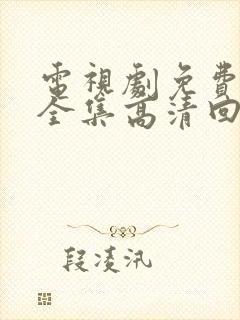 電視劇免費
全集高清回
段凌汛